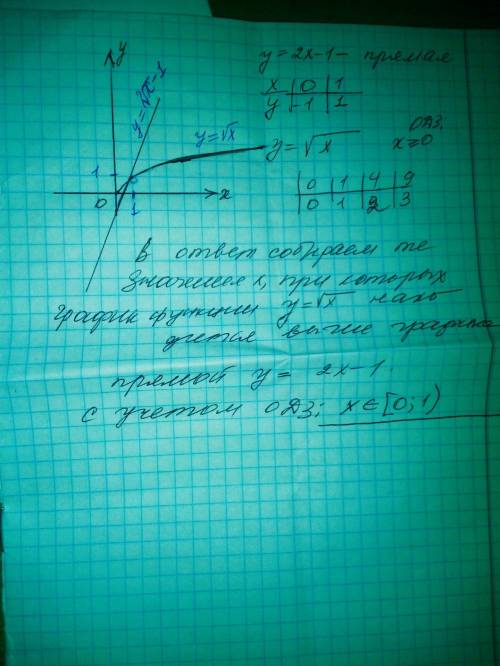 y = 2x-1 - прямая
x 0 1
y -1 1
y = √x
ОДЗ:
x ≥ 0
0 1 4 9
0 1 2 3
y
y = 2x-1
y = √x
1
0
1
x
В ответ собираем те
значения x, при которых
график функции y = √x нахо
дится выше графика
прямой y = 2x-1.
С учетом ОДЗ: x ∈ [0; 1)